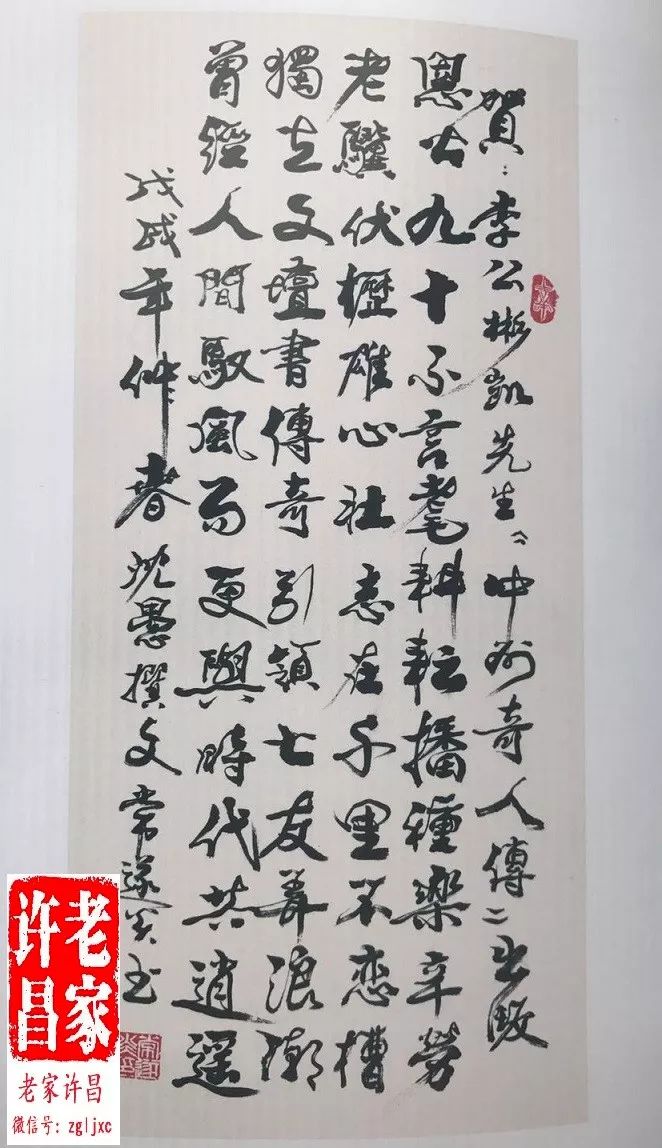 賀：李公彬凱先生《中州奇人傳》出版
恩公九十不言耄耕耘播種樂辛勞
老驥伏櫪雄心壯志在千里不戀槽
獨立文壇書傳奇引領七友弄浪潮
曾經人間馭風雨更與時代共逍遥
戊戌年仲春沈愚撰文常遂

老家许昌
老家许昌
微信号：zgljxc